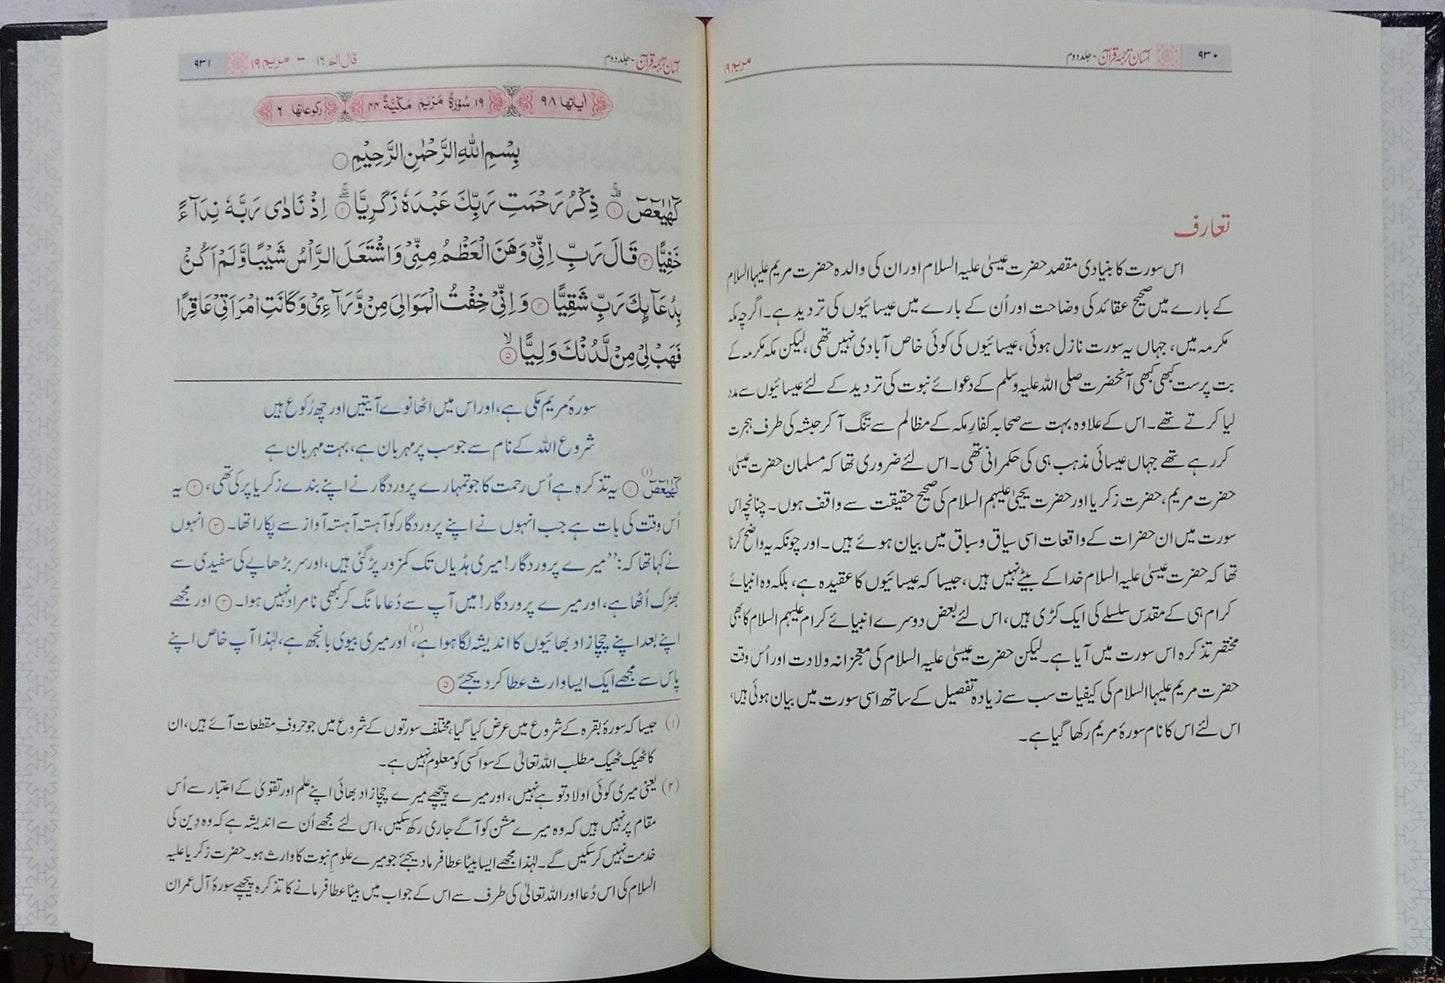 ۹۳۰ آسان ترجمۂ قرآن - جلد دوم مریم ۱۹
تعارف
اس سورت کا بنیادی مقصد حضرت عیسیٰ علیہ السلام اور ان کی والدہ حضرت مریم علیہا السلام
کے بارے میں صحیح عقائد کی وضاحت اور اُن کے بارے میں عیسائیوں کی تردید ہے۔ اگرچہ مکہ
مکرمہ میں، جہاں یہ سورت نازل ہوئی، عیسائیوں کی کوئی خاص آبادی نہیں تھی، لیکن مکہ مکرمہ کے
بت پرست کبھی کبھی آنحضرت صلی اللہ علیہ وسلم کے دعوائے نبوت کی تردید کے لئے عیسائیوں سے مدد
لیا کرتے تھے۔ اس کے علاوہ بہت سے صحابہ کفارِ مکہ کے مظالم سے تنگ آکر حبشہ کی طرف ہجرت
کر رہے تھے جہاں عیسائی مذہب ہی کی حکمرانی تھی۔ اس لئے ضروری تھا کہ مسلمان حضرت عیسیٰ،
حضرت مریم، حضرت زکریا اور حضرت یحییٰ علیہم السلام کی صحیح حقیقت سے واقف ہوں۔ چنانچہ اس
سورت میں ان حضرات کے واقعات اسی سیاق و سباق میں بیان ہوئے ہیں۔ اور چونکہ یہ واضح کرنا
تھا کہ حضرت عیسیٰ علیہ السلام خدا کے بیٹے نہیں ہیں، جیسا کہ عیسائیوں کا عقیدہ ہے، بلکہ وہ انبیائے
کرام ہی کے مقدس سلسلے کی ایک کڑی ہیں، اس لئے بعض دوسرے انبیائے کرام علیہم السلام کا بھی
مختصر تذکرہ اس سورت میں آیا ہے۔ لیکن حضرت عیسیٰ علیہ السلام کی معجزانہ ولادت اور اُس وقت
حضرت مریم علیہا السلام کی کیفیات سب سے زیادہ تفصیل کے ساتھ اسی سورت میں بیان ہوئی ہیں،
اس لئے اس کا نام سورۂ مریم رکھا گیا ہے۔
آسان ترجمۂ قرآن - جلد دوم قال الم ۱۶ - مریم ۱۹ ۹۳۱
اٰیاتها ۹۸ ۱۹ سُوْرَةُ مَرْيَمَ مَكِّيَّةٌ ۴۴ رکوعاتها ۶
بِسْمِ اللّٰهِ الرَّحْمٰنِ الرَّحِيْمِ
كٓهٰيٰعٓصٓ ۱ ذِكْرُ رَحْمَتِ رَبِّكَ عَبْدَهٗ زَكَرِيَّا ۲ اِذْ نَادٰى رَبَّهٗ نِدَآءً
خَفِيًّا ۳ قَالَ رَبِّ اِنِّيْ وَهَنَ الْعَظْمُ مِنِّيْ وَاشْتَعَلَ الرَّاْسُ شَيْبًا وَّلَمْ اَكُنْۢ
بِدُعَآئِكَ رَبِّ شَقِيًّا ۴ وَاِنِّيْ خِفْتُ الْمَوَالِيَ مِنْ وَّرَآءِيْ وَكَانَتِ امْرَاَتِيْ عَاقِرًا
فَهَبْ لِيْ مِنْ لَّدُنْكَ وَلِيًّا ۵
سورۂ مریم مکی ہے، اور اس میں اٹھانوے آیتیں اور چھ رُکوع ہیں
شروع اللہ کے نام سے جو سب پر مہربان ہے، بہت مہربان ہے
كٓهٰيٰعٓصٓ (۱) ۱ یہ تذکرہ ہے اُس رحمت کا جو تمہارے پروردگار نے اپنے بندے زکریا پر کی تھی، ۲ یہ
اُس وقت کی بات ہے جب انہوں نے اپنے پروردگار کو آہستہ آہستہ آواز سے پکارا تھا۔ ۳ انہوں
نے کہا تھا کہ: ”میرے پروردگار! میری ہڈیاں تک کمزور پڑگئی ہیں، اور سر بڑھاپے کی سفیدی سے
بھڑک اُٹھا ہے، اور میرے پروردگار! میں آپ سے دُعا مانگ کر کبھی نامراد نہیں ہوا۔ ۴ اور مجھے
اپنے بعد اپنے چچازاد بھائیوں کا اندیشہ لگا ہوا ہے، (۲) اور میری بیوی بانجھ ہے، لہٰذا آپ خاص اپنے
پاس سے مجھے ایک ایسا وارث عطا کر دیجئے ۵
(۱) جیسا کہ سورۂ بقرہ کے شروع میں عرض کیا گیا، مختلف سورتوں کے شروع میں جو حروفِ مقطعات آئے ہیں، ان
کا ٹھیک ٹھیک مطلب اللہ تعالیٰ کے سوا کسی کو معلوم نہیں ہے۔
(۲) یعنی میری کوئی اولاد تو ہے نہیں، اور میرے پیچھے میرے چچازاد بھائی اپنے علم اور تقویٰ کے اعتبار سے اُس
مقام پر نہیں ہیں کہ وہ میرے مشن کو آگے جاری رکھ سکیں، اس لئے مجھے اُن سے اندیشہ ہے کہ وہ دِین کی
خدمت نہیں کر سکیں گے۔ لہٰذا مجھے ایسا بیٹا عطا فرما دیجئے جو میرے علومِ نبوت کا وارث ہو۔ حضرت زکریا علیہ
السلام کی اس دُعا اور اللہ تعالیٰ کی طرف سے اس کے جواب میں بیٹا عطا فرمانے کا تذکرہ پیچھے سورۂ آل عمران